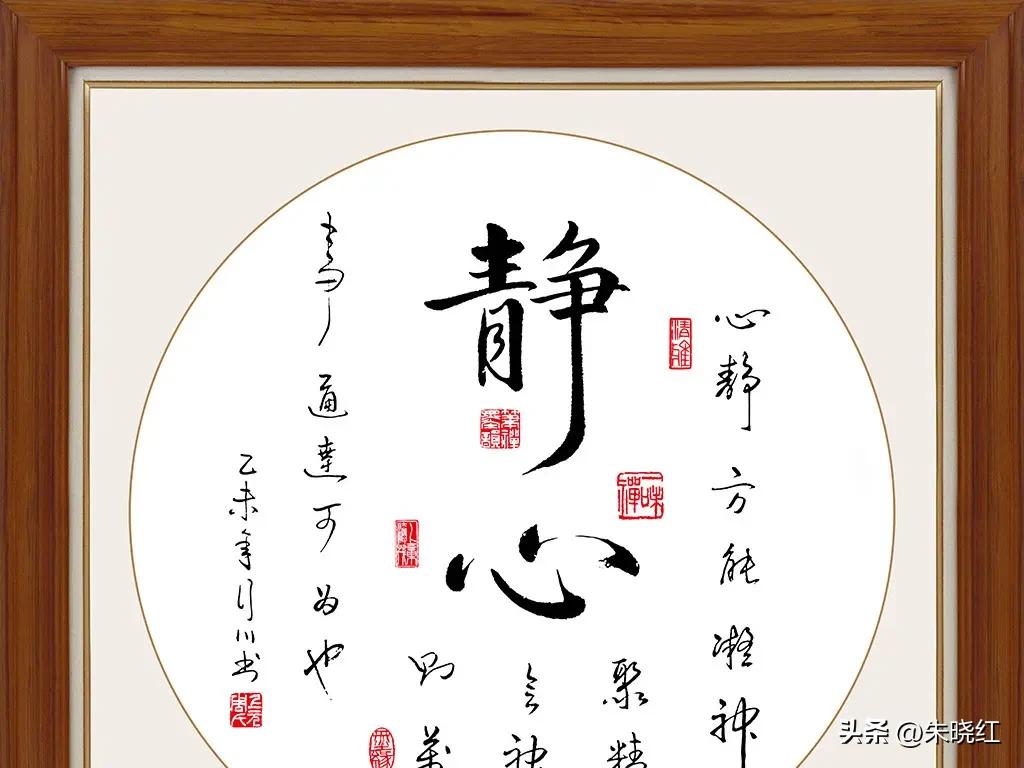 静心
心静方能凝神
聚精
会神
则萬
事通達可为也
乙未年川书
清雅
头条 @朱晓红